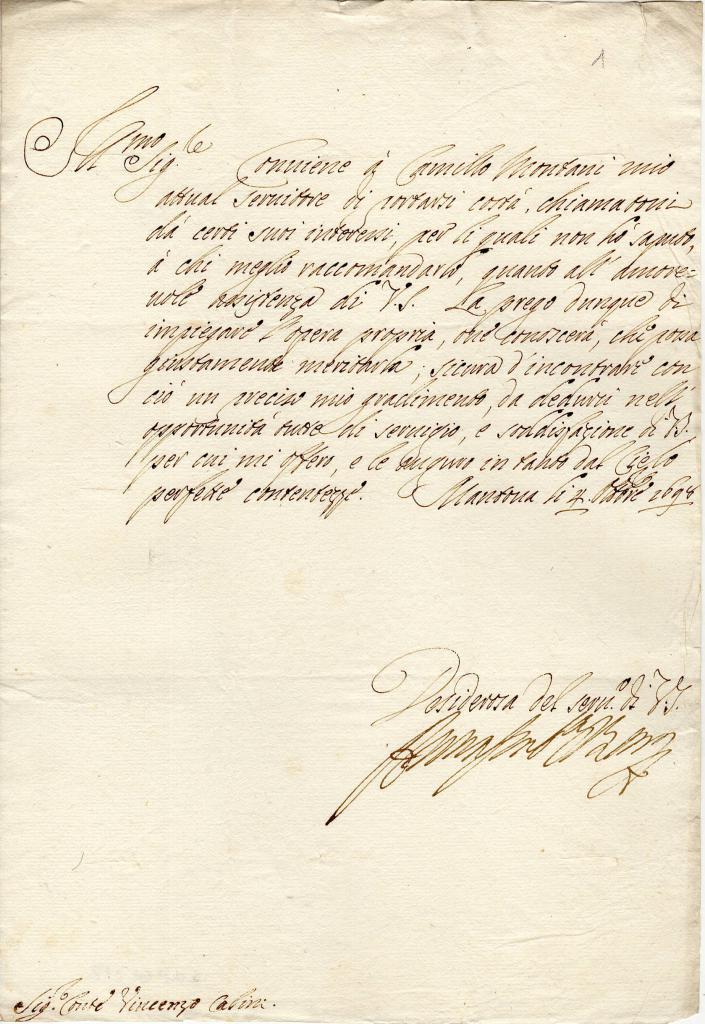 1
Ill.mo Sig.re Conviene à Camillo Montani mio
attual Servitore di portarsi costà, chiamatoui
dà certi suoi interessi, per li quali non hò saputo,
à chi meglio raccomandarlo, quanto all' amore=
uole assistenza di V.S. La prego dunque di
impiegare l'opera propria, oue conoscerà, che possa
giustamente meritarla, sicura d'incontrare con
ciò un preciso mio gradimento, da dedursi nell'
opportunità tutte di seruigio, e soddisfazione di V.S.
per cui mi offero, e le auguro in tanto dal Cielo
perfette contentezze. Mantoua li 4. Ottobre 1698
Desiderosa del seru.o di V.S.
Sig.r Conte Vincenzo Calini.